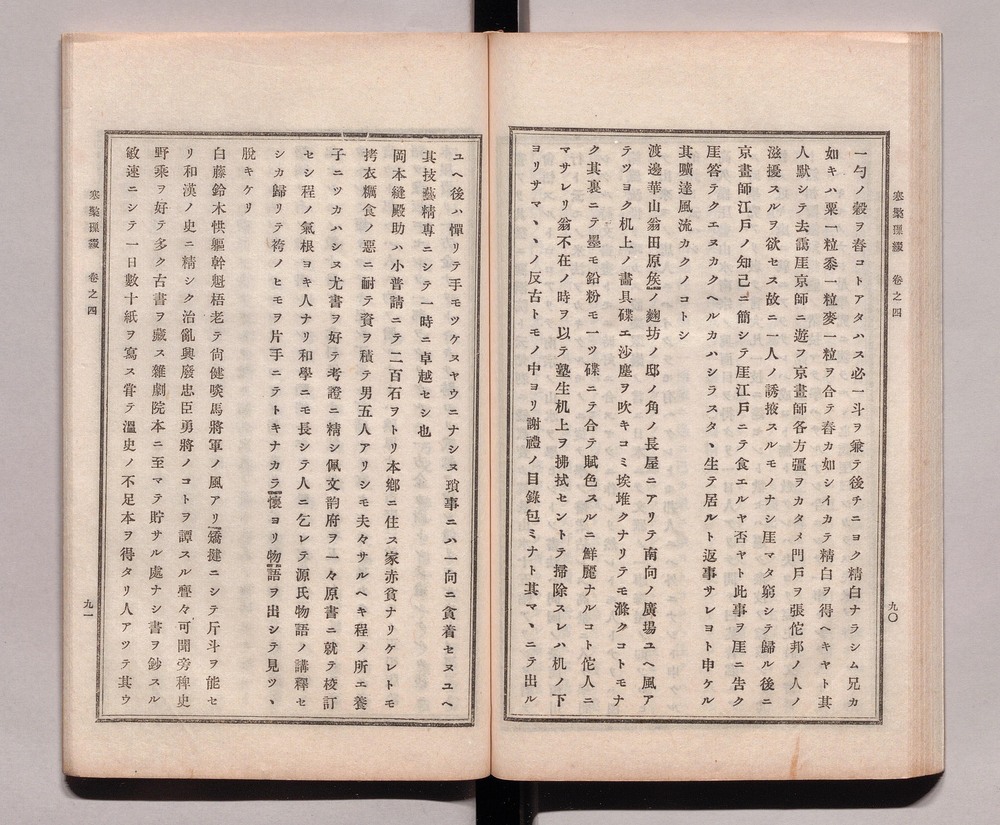 寒檠璅綴　卷之四
九〇
一勺ノ穀ヲ舂コトアタハス必一斗ヲ兼テ後チニヨク精白ナラシム兄カ
如キハ粟一粒黍一粒麥一粒ヲ合テ舂カ如シイカテ精白ヲ得ヘキヤト其
人默シテ去靄厓京師ニ遊フ京畫師各方疆ヲカタメ門戸ヲ張佗邦ノ人ノ
滋擾スルヲ欲セス故ニ一人ノ誘掖スルモノナシ厓マタ窮シテ歸ル後ニ
京畫師江戸ノ知己ニ簡シテ厓江戸ニテ食エルヤ否ヤト此事ヲ厓ニ告ク
厓答テクエヌカクヘルカハシラスタヽ生テ居ルト返事サレヨト申ケル
其曠達風流カクノコトシ
渡邊華山翁田原矦ノ麹坊ノ邸ノ角ノ長屋ニアリテ南向ノ廣場ユヘ風ア
テツヨク机上ノ畵具碟エ沙塵ヲ吹キコミ埃堆クナリテモ滌クコトモナ
ク其裏ニテ墨モ鉛粉モ一ツ碟ニテ合テ賦色スルニ鮮麗ナルコト佗人ニ
マサレリ翁不在ノ時ヲ以テ塾生机上ヲ拂拭セントテ掃除スレハ机ノ下
ヨリサマヽヽノ反古トモノ中ヨリ謝禮ノ目錄包ミナト其マヽニテ出ル
ユヘ後ハ憚リテ手モツケスヤウニナシヌ瑣事ニハ一向ニ貪着セヌユヘ
其技藝精專ニシテ一時ニ卓越セシ也
岡本縫殿助ハ小普請ニテ二百石ヲトリ本鄕ニ住ス家赤貧ナリケレトモ
袴衣糲食ノ惡ニ耐テ資ヲ積テ男五人アリシモ夫々サルヘキ程ノ所エ養
子ニツカハシヌ尤書ヲ好テ考證ニ精シ佩文韵府ヲ一々原書ニ就テ校訂
セシ程ノ氣根ヨキ人ナリ和學ニモ長シテ人ニ乞レテ源氏物語ノ講釋セ
シカ歸リテ袴ノヒモヲ片手ニテトキナカラ懷ヨリ物語ヲ出シテ見ツヽ
脫キケリ
白藤鈴木恭軀幹魁梧老テ尙健啖馬將軍ノ風アリ矯健ニシテ斤斗ヲ能セ
リ和漢ノ史ニ精シク治亂興廢忠臣勇將ノコトヲ譚スル亹々可聞旁稗史
野乘ヲ好テ多ク古書ヲ藏ス雜劇院本ニ至マテ貯サル處ナシ書ヲ鈔スル
敏速ニシテ一日數十紙ヲ寫ス甞テ溫史ノ不足本ヲ得タリ人アツテ其ウ
寒檠璅綴　卷之四
九一